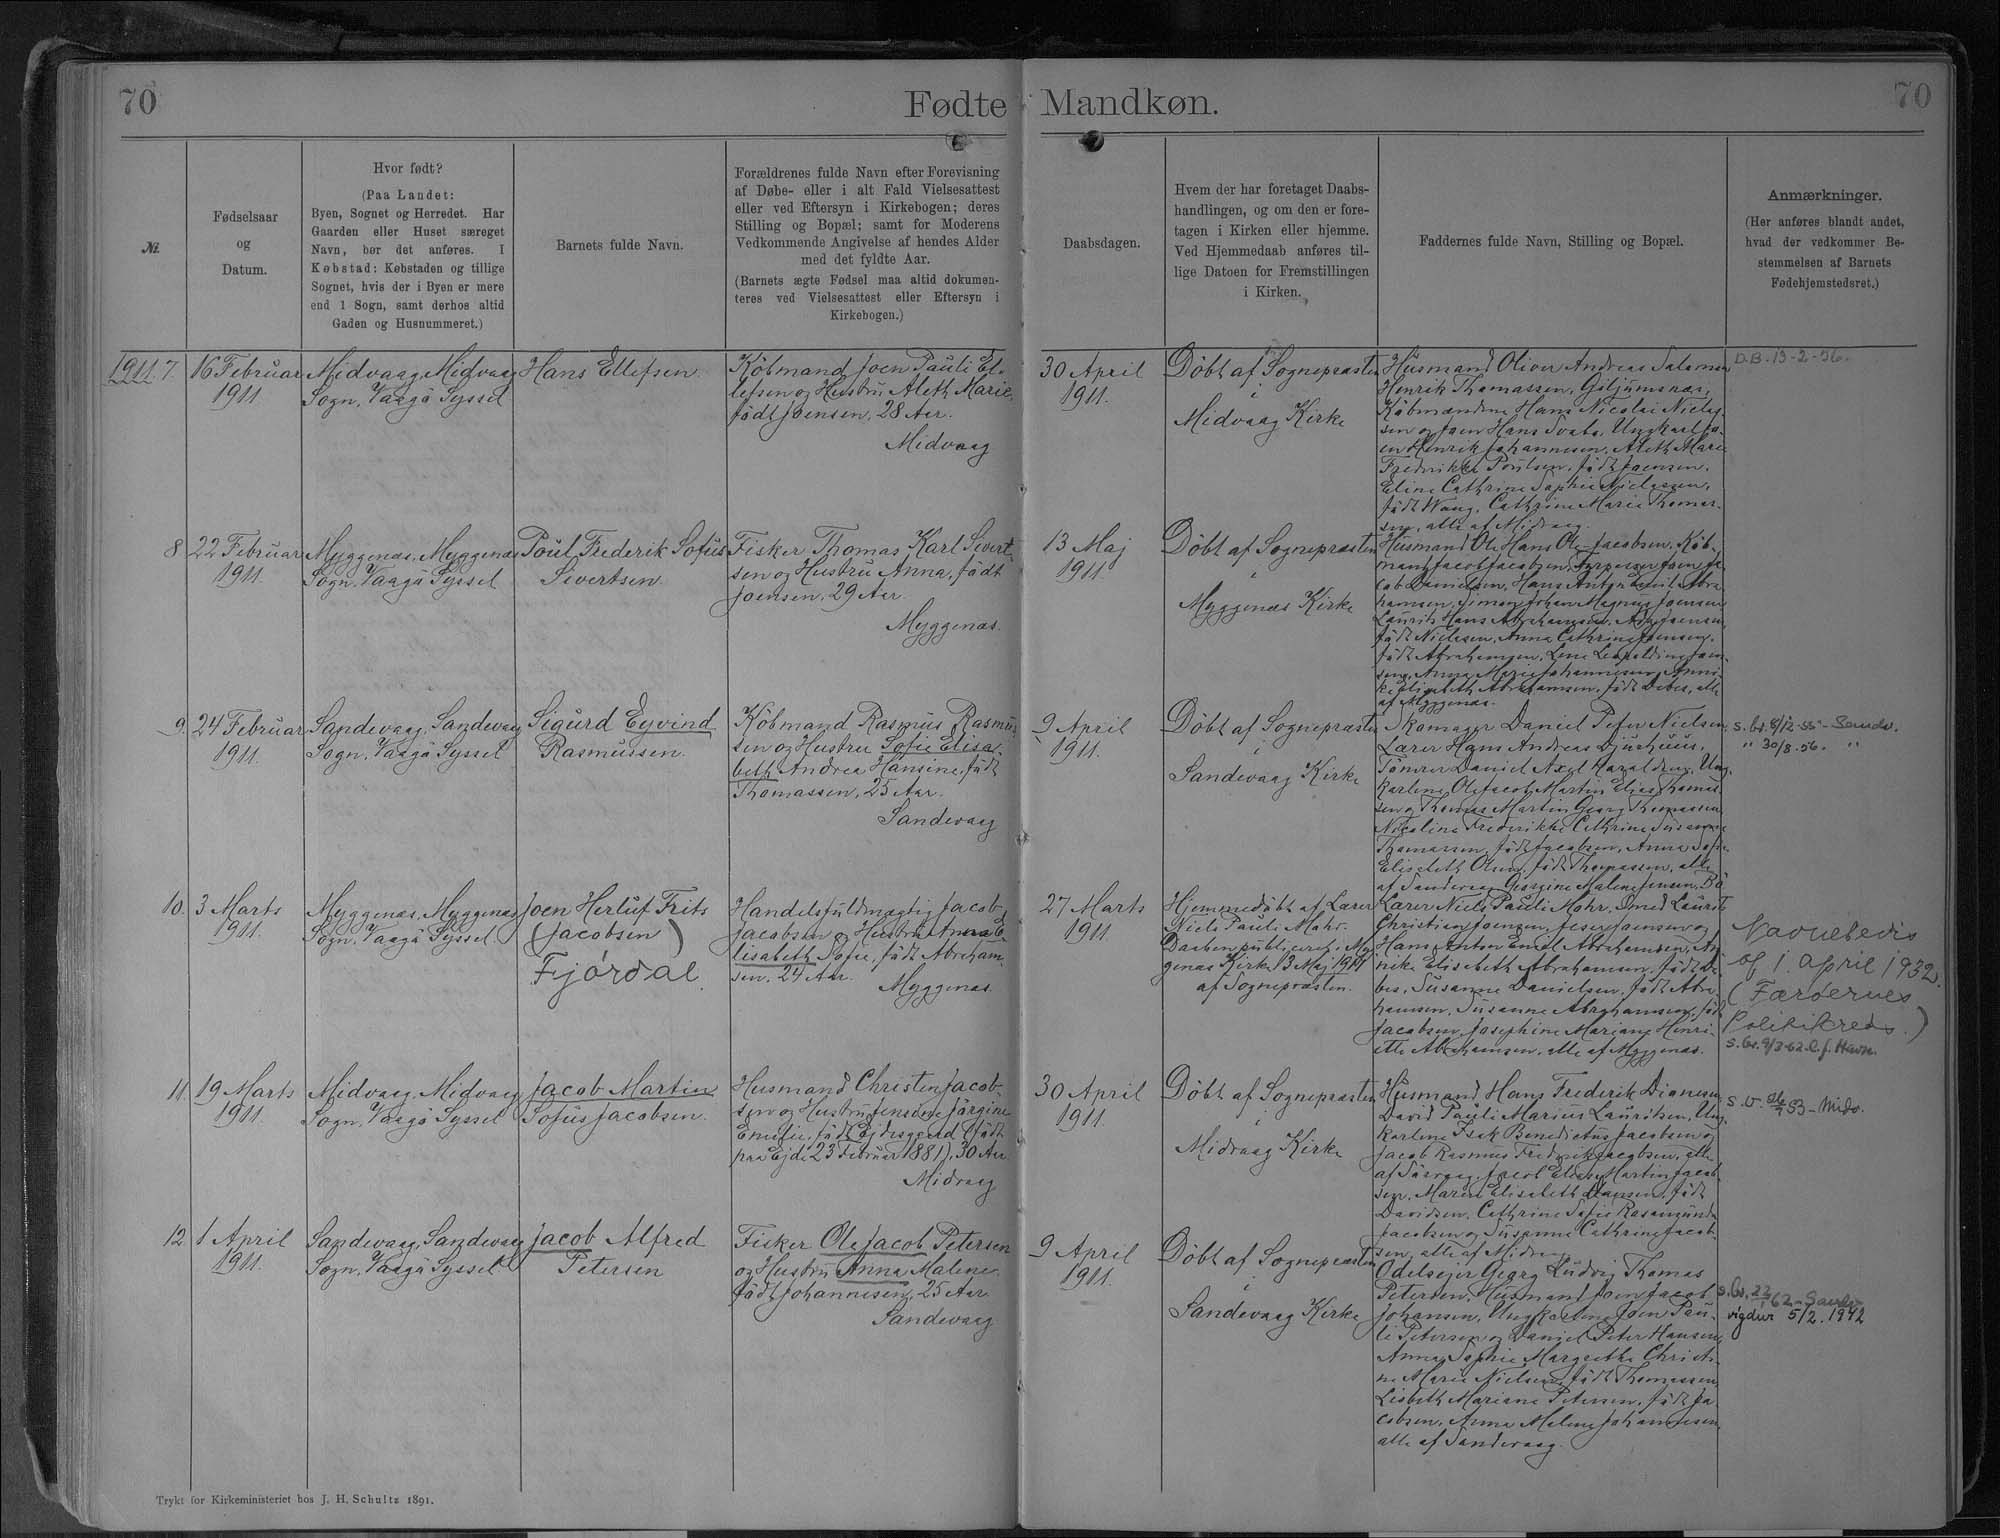 70
Fødte Mandkøn.
70
№.
Fødselsaar
og
Datum.
Hvor født?
(Paa Landet:
Byen, Sognet og Herredet. Har
Gaarden eller Huset særeget
Navn, bør det anføres. I
Købstad: Købstaden og tillige
Sognet, hvis der i Byen er mere
end 1 Sogn, samt derhos altid
Gaden og Husnummeret.)
Barnets fulde Navn.
Forældrenes fulde Navn efter Forevisning
af Døbe- eller i alt Fald Vielsesattest
eller ved Eftersyn i Kirkebogen; deres
Stilling og Bopæl; samt for Moderens
Vedkommende Angivelse af hendes Alder
med det fyldte Aar.
(Barnets ægte Fødsel maa altid dokumen-
teres ved Vielsesattest eller Eftersyn i
Kirkebogen.)
Daabsdagen.
Hvem der har foretaget Daabs-
handlingen, og om den er fore-
tagen i Kirken eller hjemme.
Ved Hjemmedaab anføres til-
lige Datoen for Fremstillingen
i Kirken.
Faddernes fulde Navn, Stilling og Bopæl.
Anmærkninger.
(Her anføres blandt andet,
hvad der vedkommer Be-
stemmelsen af Barnets
Fødehjemstedsret.)
1911. 7.
16 Februar
1911.
Midvaag, Midvaag
Sogn, Vaagø Syssel
Hans Ellefsen
Købmand Joen Pauli El-
lefsen og Hustru Aleth Marie,
født Joensen, 28 Aar.
Midvaag
30 April
1911.
Døbt af Sognepræsten
i
Midvaag Kirke
Husmand Oliver Andreas Salamon
Henrik Thomassen, Giljumsnæs,
Købmændene Hans Nicolai Niclas-
sen og Joen Hans Svabo, Ungkarl Jo-
en Henrik Johannesen, Aleth Marie
Fredrikke Poulsen, født Joensen,
Eline Cathrine Sophie Niclassen,
født Waag, Cathrine Marie Thomas-
sen, alle af Midvaag.
D.B. 13-2-56.
8
22 Februar
1911.
Myggenæs, Myggenæs
Sogn, Vaagø Syssel
Poul Frederik Sofus
Sivertsen
Fisker Thomas Karl Sivert-
sen og Hustru Anna, født
Joensen, 29 Aar.
Myggenæs.
13 Maj
1911.
Døbt af Sognepræsten
i
Myggenæs Kirke
Husmand Ole Hans Ole Jacobsen, Køb-
mand Jacob Jacobsen, Joen Ja-
cob Danielsen, Hans Anton Emil Abra-
hamsen, Simon Johan Magnus Joensen
Laurits Hans Abrahamsen, Joensen,
født Niclasen, Anna Cathrine Joensen,
født Abrahamsen, Lene Leopoldine Joen-
sen, Anna Marie Johannesen, Anni-
ke Elisabeth Abrahamsen, født Debes, alle
af Myggenæs.
9.
24 Februar
1911.
Sandevaag, Sandevaag
Sogn, Vaagø Syssel
Sigurd Eyvind
Rasmussen
Købmand Rasmus Rasmus-
sen og Hustru Sofie Elisa-
beth Andrea Hansine, født
Thomassen, 25 Aar.
Sandevaag
9 April
1911.
Døbt af Sognepræsten
i
Sandevaag Kirke
Skomager Daniel Peter Nielsen,
Lærer Hans Andreas Djurhuus,
Tømrer Daniel Axel Haraldsen, Ung-
karlene Ole Jacob Martin Elias Thomas-
sen og Thomas Martin Georg Thomassen
Nicoline Frederikke Cathrine Susanne
Thomassen, født Jacobsen, Anna Sofie
Elisabeth Olsen, født Thomassen, alle
af Sandevaag, Georgine Malene Jensen, Bø
s. br. 8/12-55 - Sandv.
" 30/8-56. "
10.
3 Marts
1911.
Myggenæs, Myggenæs
Sogn, Vaagø Syssel
Joen Herluf Frits
(Jacobsen)
Fjørdal.
Handelsfuldmægtig Jacob
Jacobsen og Hustru Anna E-
lisabeth Sofie, født Abraham-
sen, 24 Aar.
Myggenæs
27 Marts
1911
Hjemmedøbt af Lærer
Niels Pauli Mohr.
Daaben publiceret i Myg-
genæs Kirke 13 Maj 1911
af Sognepræsten.
Lærer Niels Pauli Mohr, Smed Laurits
Christian Joensen, Joensen og
Hans Anton Emil Abrahamsen, An-
nike Elisabeth Abrahamsen, født De-
bes, Susanne Danielsen, født Abra-
hamsen, Susanne Abrahamsen, født
Jacobsen, Josephine Mariane Henri-
ette Abrahamsen, alle af Myggenæs.
Navnebevis
af 1. april 1932.
(Færøernes
Politikreds.)
s. br. 9/3-62. l. f. Havn.
11.
19 Marts
1911.
Midvaag, Midvaag
Sogn, Vaagø Syssel
Jacob Martin
Sofus Jacobsen.
Husmand Christen Jacob-
sen og Hustru Jensine Jørgine
Emilie, født Ejdesgaard (født
paa Ejde 23 Februar 1881), 30 Aar.
Midvaag
30 April
1911.
Døbt af Sognepræsten
i
Midvaag Kirke
Husmand Hans Frederik Dionesen,
David Pauli Marius Lauritsen, Ung-
karlene Isak Benedictus Jacobsen og
Jacob Rasmus Fredrik Jacobsen, alle
af Sørvaag, Jacob Elias Martin Jacob-
sen, Maren Elisabeth Hansen, født
Davidsen, Cathrine Sofie Rosamunda
Jacobsen og Susanne Cathrine Jacob-
sen, alle af Midvaag
s. v. 26/2 53 - Midv.
12.
1 April
1911.
Sandevaag, Sandevaag
Sogn, Vaagø Syssel
Jacob Alfred
Petersen
Fisker Ole Jacob Petersen
og Hustru Anna Malene,
født Johannesen, 25 Aar
Sandevaag
9 April
1911.
Døbt af Sognepræsten
i
Sandevaag Kirke
Odelsejer Georg Ludvig Thomas
Petersen, Husmand Joen Jacob
Johansen, Ungkarlene Joen Pau-
li Petersen og Daniel Peter Hansen,
Anna Sophie Margrethe Christi-
ne Marie Nielsen, født Thomassen,
Lisbeth Mariane Petersen, født Ja-
cobsen, Anna Malene Johannesen,
alle af Sandevaag.
s. br. 22/1 62 - Sandv.
vígdur 5/2. 1942
Trykt for Kirkeministeriet hos J. H. Schultz 1891.